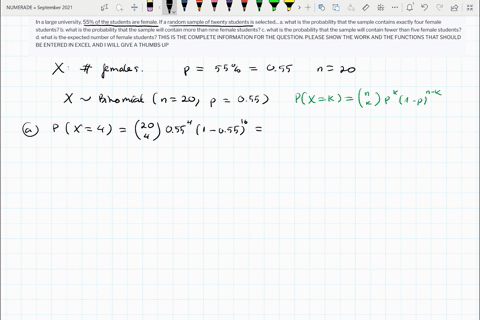 NUMERADE • September 2021
In a large university, 55% of the students are female. If a random sample of twenty students is selected... a. what is the probability that the sample contains exactly four female
students? b. what is the probability that the sample will contain more than nine female students? c. what is the probability that the sample will contain fewer than five female students?
d. what is the expected number of female students? THIS IS THE COMPLETE INFORMATION FOR THE QUESTION. PLEASE SHOW THE WORK AND THE FUNCTIONS THAT SHOULD
BE ENTERED IN EXCEL AND I WILL GIVE A THUMBS UP
X: # females. p = 55% = 0.55 n = 20
X ~ Binomial (n = 20, p = 0.55) P(X=k) = (n k) p^k (1-p)^n-k
(a) P(X=4) = (20 4) 0.55^4 (1-0.55)^16 =